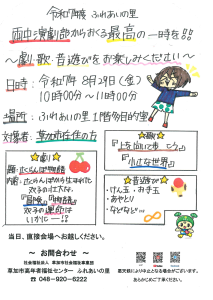 令和7年度 ふれあいの里
両中演劇部からおくる最高の一時を!!
～劇・歌・昔遊びをお楽しみください～
日時：令和7年 8月29日(金)
10時00分～11時00分
場所：ふれあいの里 1階多目的室
対象者：草加市在住の方
★劇★
題：さくらんぼ物語
双子の
★歌★
「上を向いて歩こう」
「小さな世界」
★昔遊び★
・けん玉・お手玉
・あやとり
などなど
当日、直接会場へお越しください。
～ お問合わせ ～
社会福祉法人 草加市社会福祉事業団
草加市高年者福祉センター ふれあいの里
☎ 048-920-6222
あらかじめご了承ください。